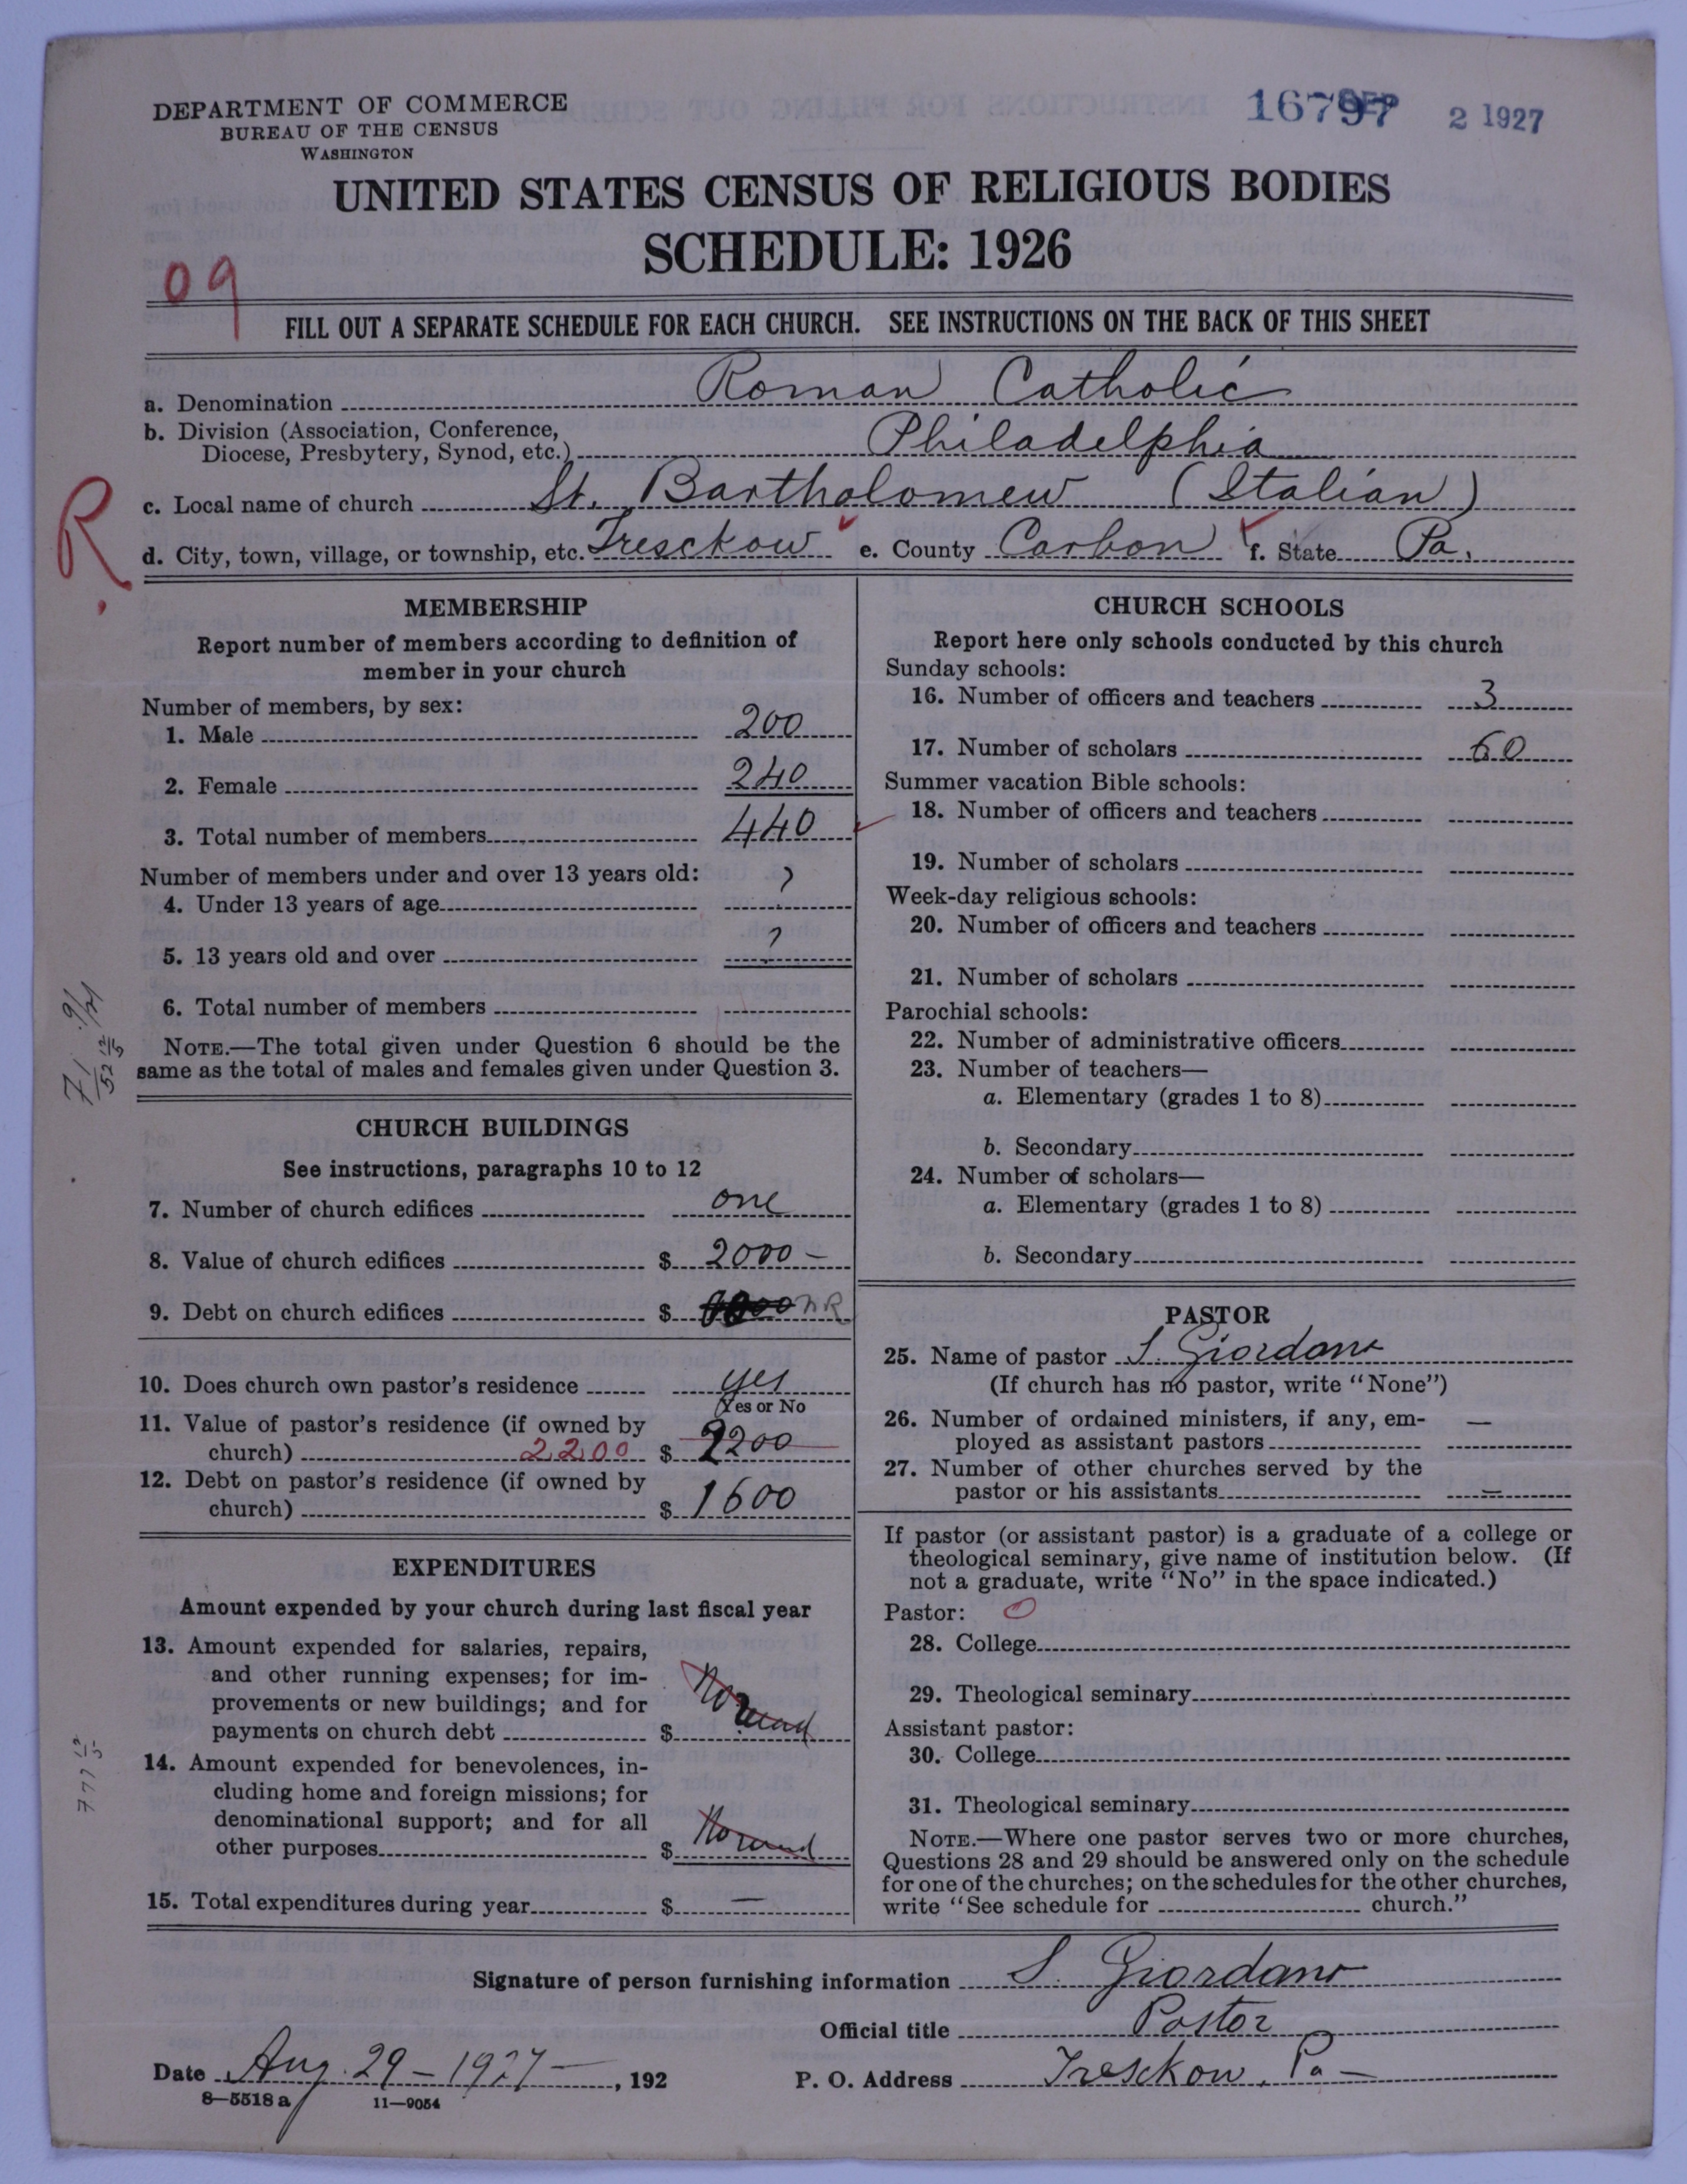 DEPARTMENT OF COMMERCE
BUREAU OF THE CENSUS
WASHINGTON
16797 SEP 2 1927
UNITED STATES CENSUS OF RELIGIOUS BODIES
SCHEDULE: 1926
09
FILL OUT A SEPARATE SCHEDULE FOR EACH CHURCH. SEE INSTRUCTIONS ON THE BACK OF THIS SHEET
a. Denomination Roman Catholic
b. Division (Association, Conference,
Diocese, Presbytery, Synod, etc.) Philadelphia
R
c. Local name of church St. Bartholomew (Italian)
d. City, town, village, or township, etc. Tresckow e. County Carbon f. State Pa.
MEMBERSHIP
Report number of members according to definition of
member in your church
Number of members, by sex:
1. Male 200
2. Female 240
3. Total number of members 440
Number of members under and over 13 years old:
4. Under 13 years of age ?
5. 13 years old and over ?
6. Total number of members
NOTE.—The total given under Question 6 should be the
same as the total of males and females given under Question 3.
CHURCH BUILDINGS
See instructions, paragraphs 10 to 12
7. Number of church edifices one
8. Value of church edifices $ 2000 –
9. Debt on church edifices $ NR
10. Does church own pastor's residence yes
Yes or No
11. Value of pastor's residence (if owned by
church) 2200 $ 2200
12. Debt on pastor's residence (if owned by
church) $ 1600
EXPENDITURES
Amount expended by your church during last fiscal year
13. Amount expended for salaries, repairs,
and other running expenses; for im-
provements or new buildings; and for
payments on church debt $ No
14. Amount expended for benevolences, in-
cluding home and foreign missions; for
denominational support; and for all
other purposes $ No
15. Total expenditures during year $ —
CHURCH SCHOOLS
Report here only schools conducted by this church
Sunday schools:
16. Number of officers and teachers 3
17. Number of scholars 60
Summer vacation Bible schools:
18. Number of officers and teachers
19. Number of scholars
Week-day religious schools:
20. Number of officers and teachers
21. Number of scholars
Parochial schools:
22. Number of administrative officers
23. Number of teachers—
a. Elementary (grades 1 to 8)
b. Secondary
24. Number of scholars—
a. Elementary (grades 1 to 8)
b. Secondary
PASTOR
25. Name of pastor S. Giordano
(If church has no pastor, write "None")
26. Number of ordained ministers, if any, em-
ployed as assistant pastors —
27. Number of other churches served by the
pastor or his assistants —
If pastor (or assistant pastor) is a graduate of a college or
theological seminary, give name of institution below. (If
not a graduate, write "No" in the space indicated.)
Pastor: 0
28. College
29. Theological seminary
Assistant pastor:
30. College
31. Theological seminary
NOTE.—Where one pastor serves two or more churches,
Questions 28 and 29 should be answered only on the schedule
for one of the churches; on the schedules for the other churches,
write "See schedule for church."
Signature of person furnishing information S. Giordano
Official title Pastor
Date Aug. 29 – 1927 –, 192
P. O. Address Tresckow, Pa –
8—5518 a 11—9054